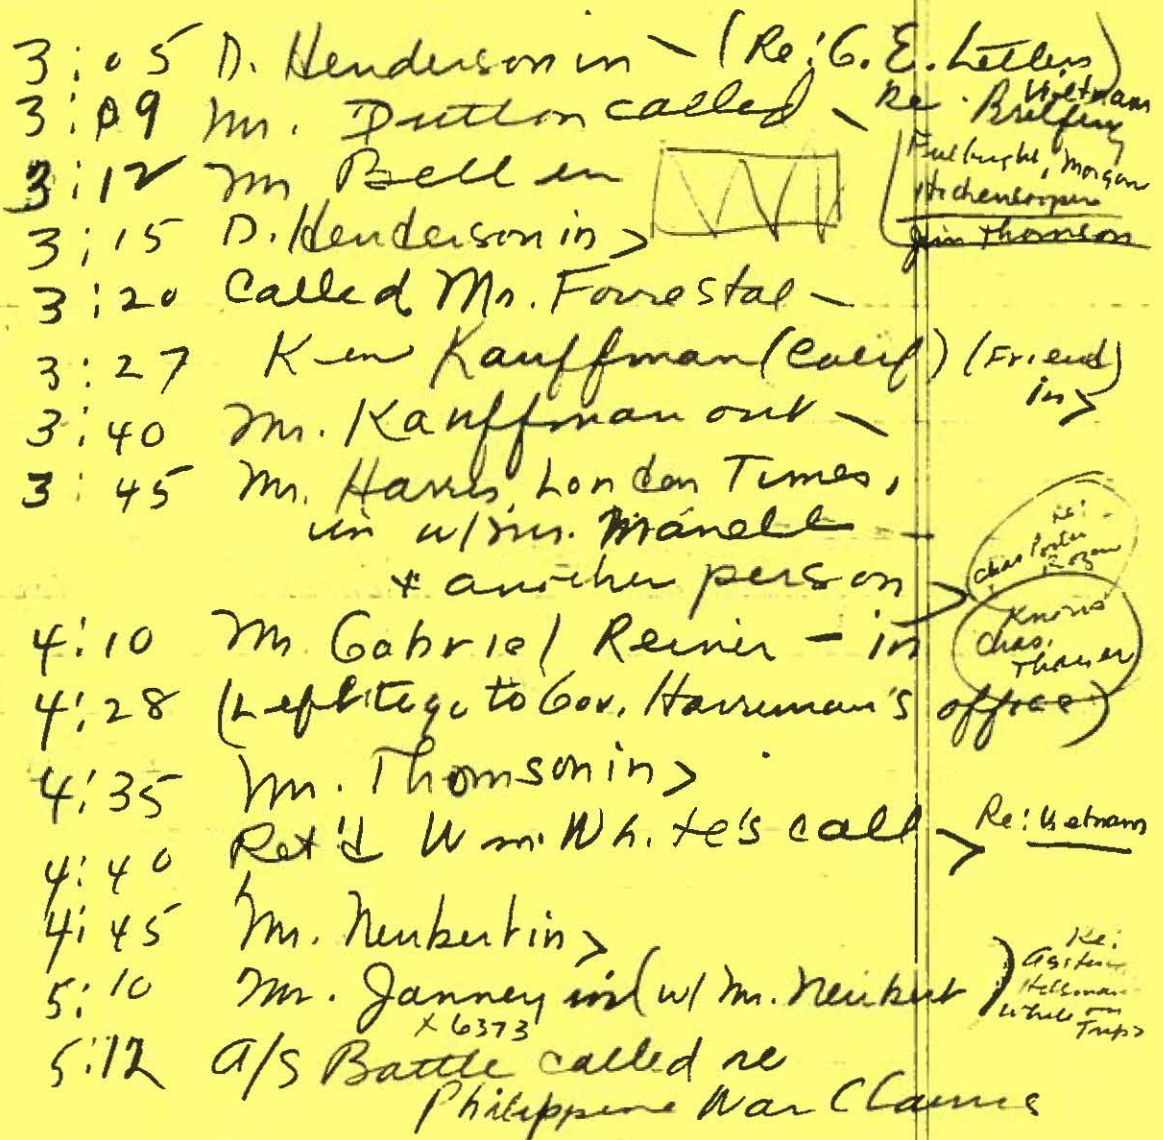 3:05 D. Henderson in - (Re: G.E. Letters)
3:09 Mr. Dutton called - Re. Vietnam Briefing
Fulbright, Morgan
Hickenlooper
Jim Thomson
3:12 Mr Bell in
3:15 D. Henderson in >
3:20 Called Mr. Forrestal -
3:27 Ken Kauffman (Calif) (Friend)
in >
3:40 Mr. Kauffman out -
3:45 Mr. Harris, London Times,
in w/Mr. Manell -
+ another person >
Re:
Chas Porter
4:10 Mr Gabriel Reiner - in
Knows
Chas.
Thayer
4:28 (Left to go to Gov. Harriman's office)
4:35 Mr. Thomson in >
4:40 Ret'd Wm. White's call > Re: Vietnam
4:45 Mr. Neubert in >
5:10 Mr. Janney in (w/ Mr. Neubert)
x 6373
Re:
Hilsman
while on
Trips
5:12 A/S Battle called re
Philippine War Claims